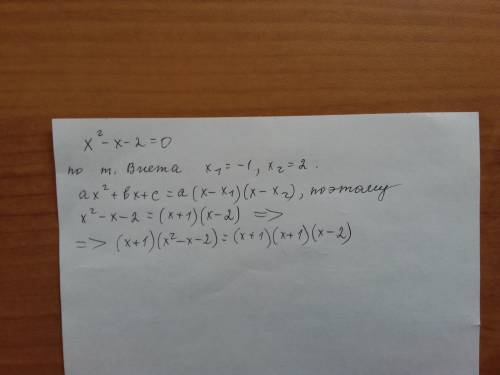 x² - x - 2 = 0
по т. Виета x₁ = -1, x₂ = 2.
ax² + bx + c = a(x - x₁)(x - x₂), поэтому
x² - x - 2 = (x+1)(x-2) =>
=> (x+1)(x² - x - 2) = (x+1)(x+1)(x-2)